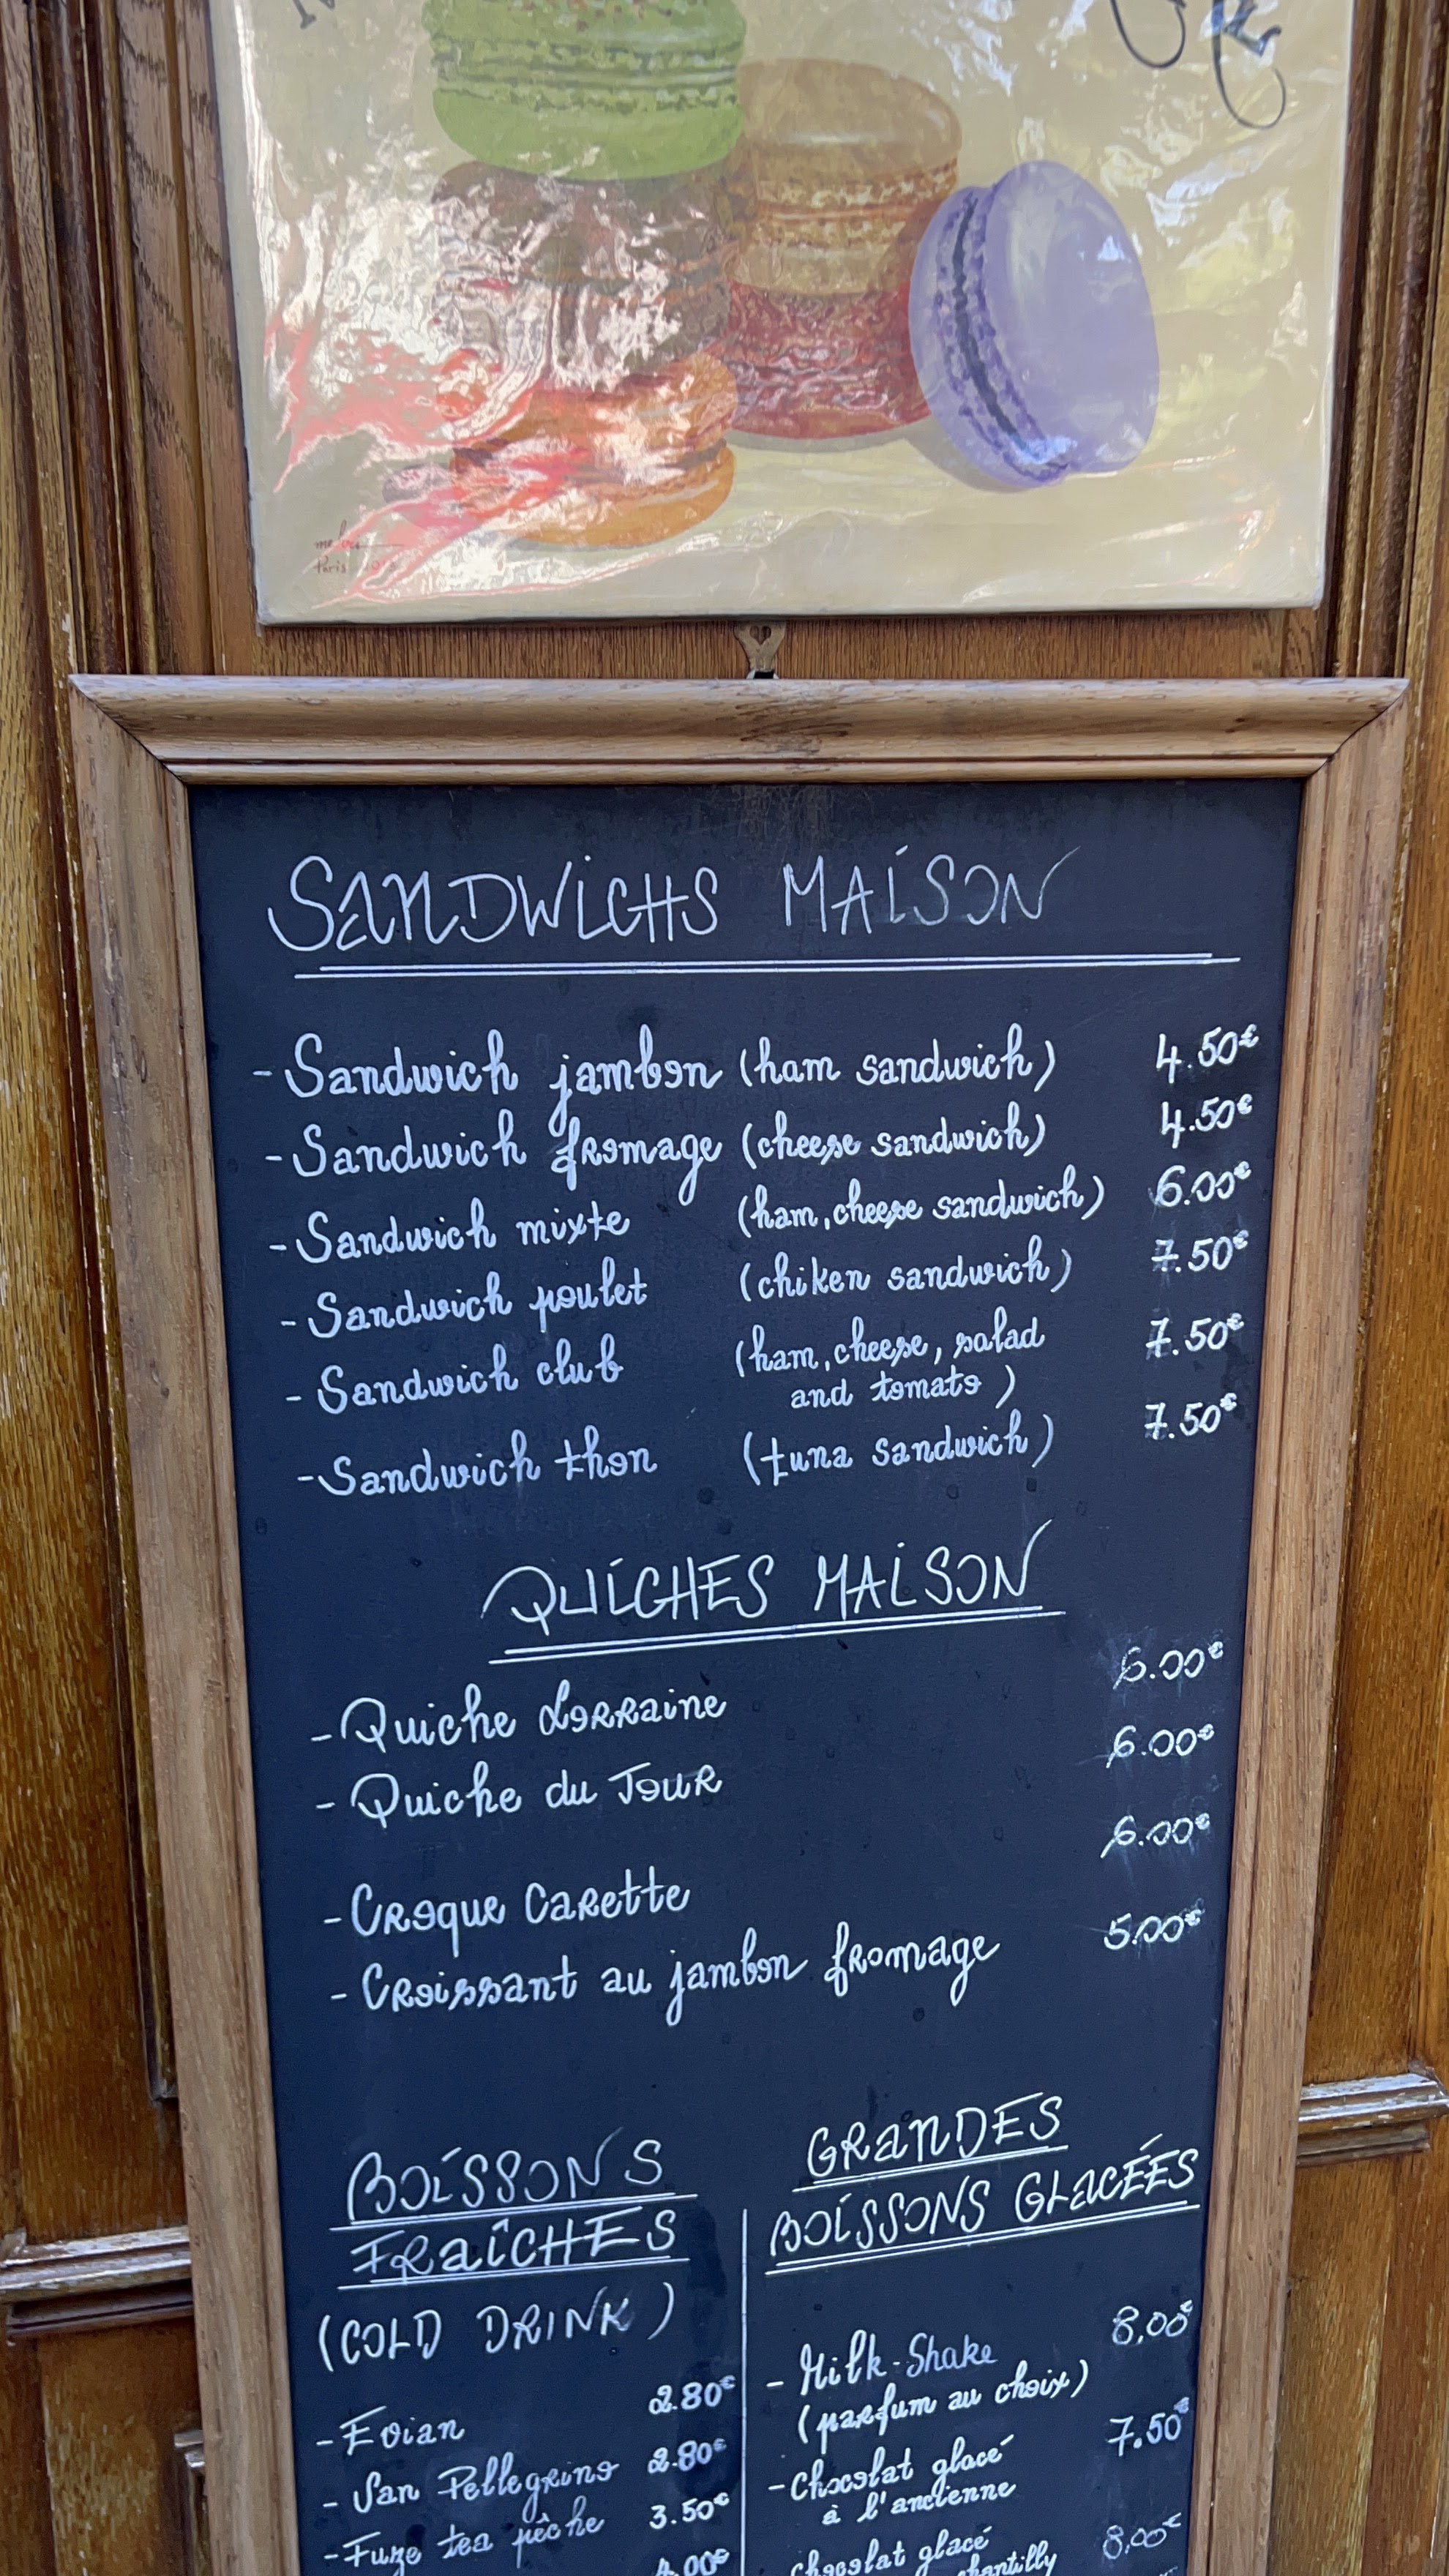 Paris
SANDWICHS MAISON
- Sandwich jambon (ham sandwich) 4.50€
- Sandwich fromage (cheese sandwich) 4.50€
- Sandwich mixte (ham, cheese sandwich) 6.00€
- Sandwich poulet (chiken sandwich) 7.50€
- Sandwich club (ham, cheese, salad 7.50€
and tomato)
- Sandwich thon (tuna sandwich) 7.50€
QUICHES MAISON
- Quiche Lorraine 6.00€
- Quiche du Jour 6.00€
- Croque Carette 6.00€
- Croissant au jambon fromage 5.00€
BOISSONS
FRAÎCHES
(COLD DRINK)
- Evian 2.80€
- San Pellegrino 2.80€
- Fuze tea pêche 3.50€
4.00€
GRANDES
BOISSONS GLACÉES
- Milk-Shake 8,00€
(parfum au choix)
- Chocolat glacé 7.50€
à l'ancienne
chocolat glacé 8,00€
chantilly